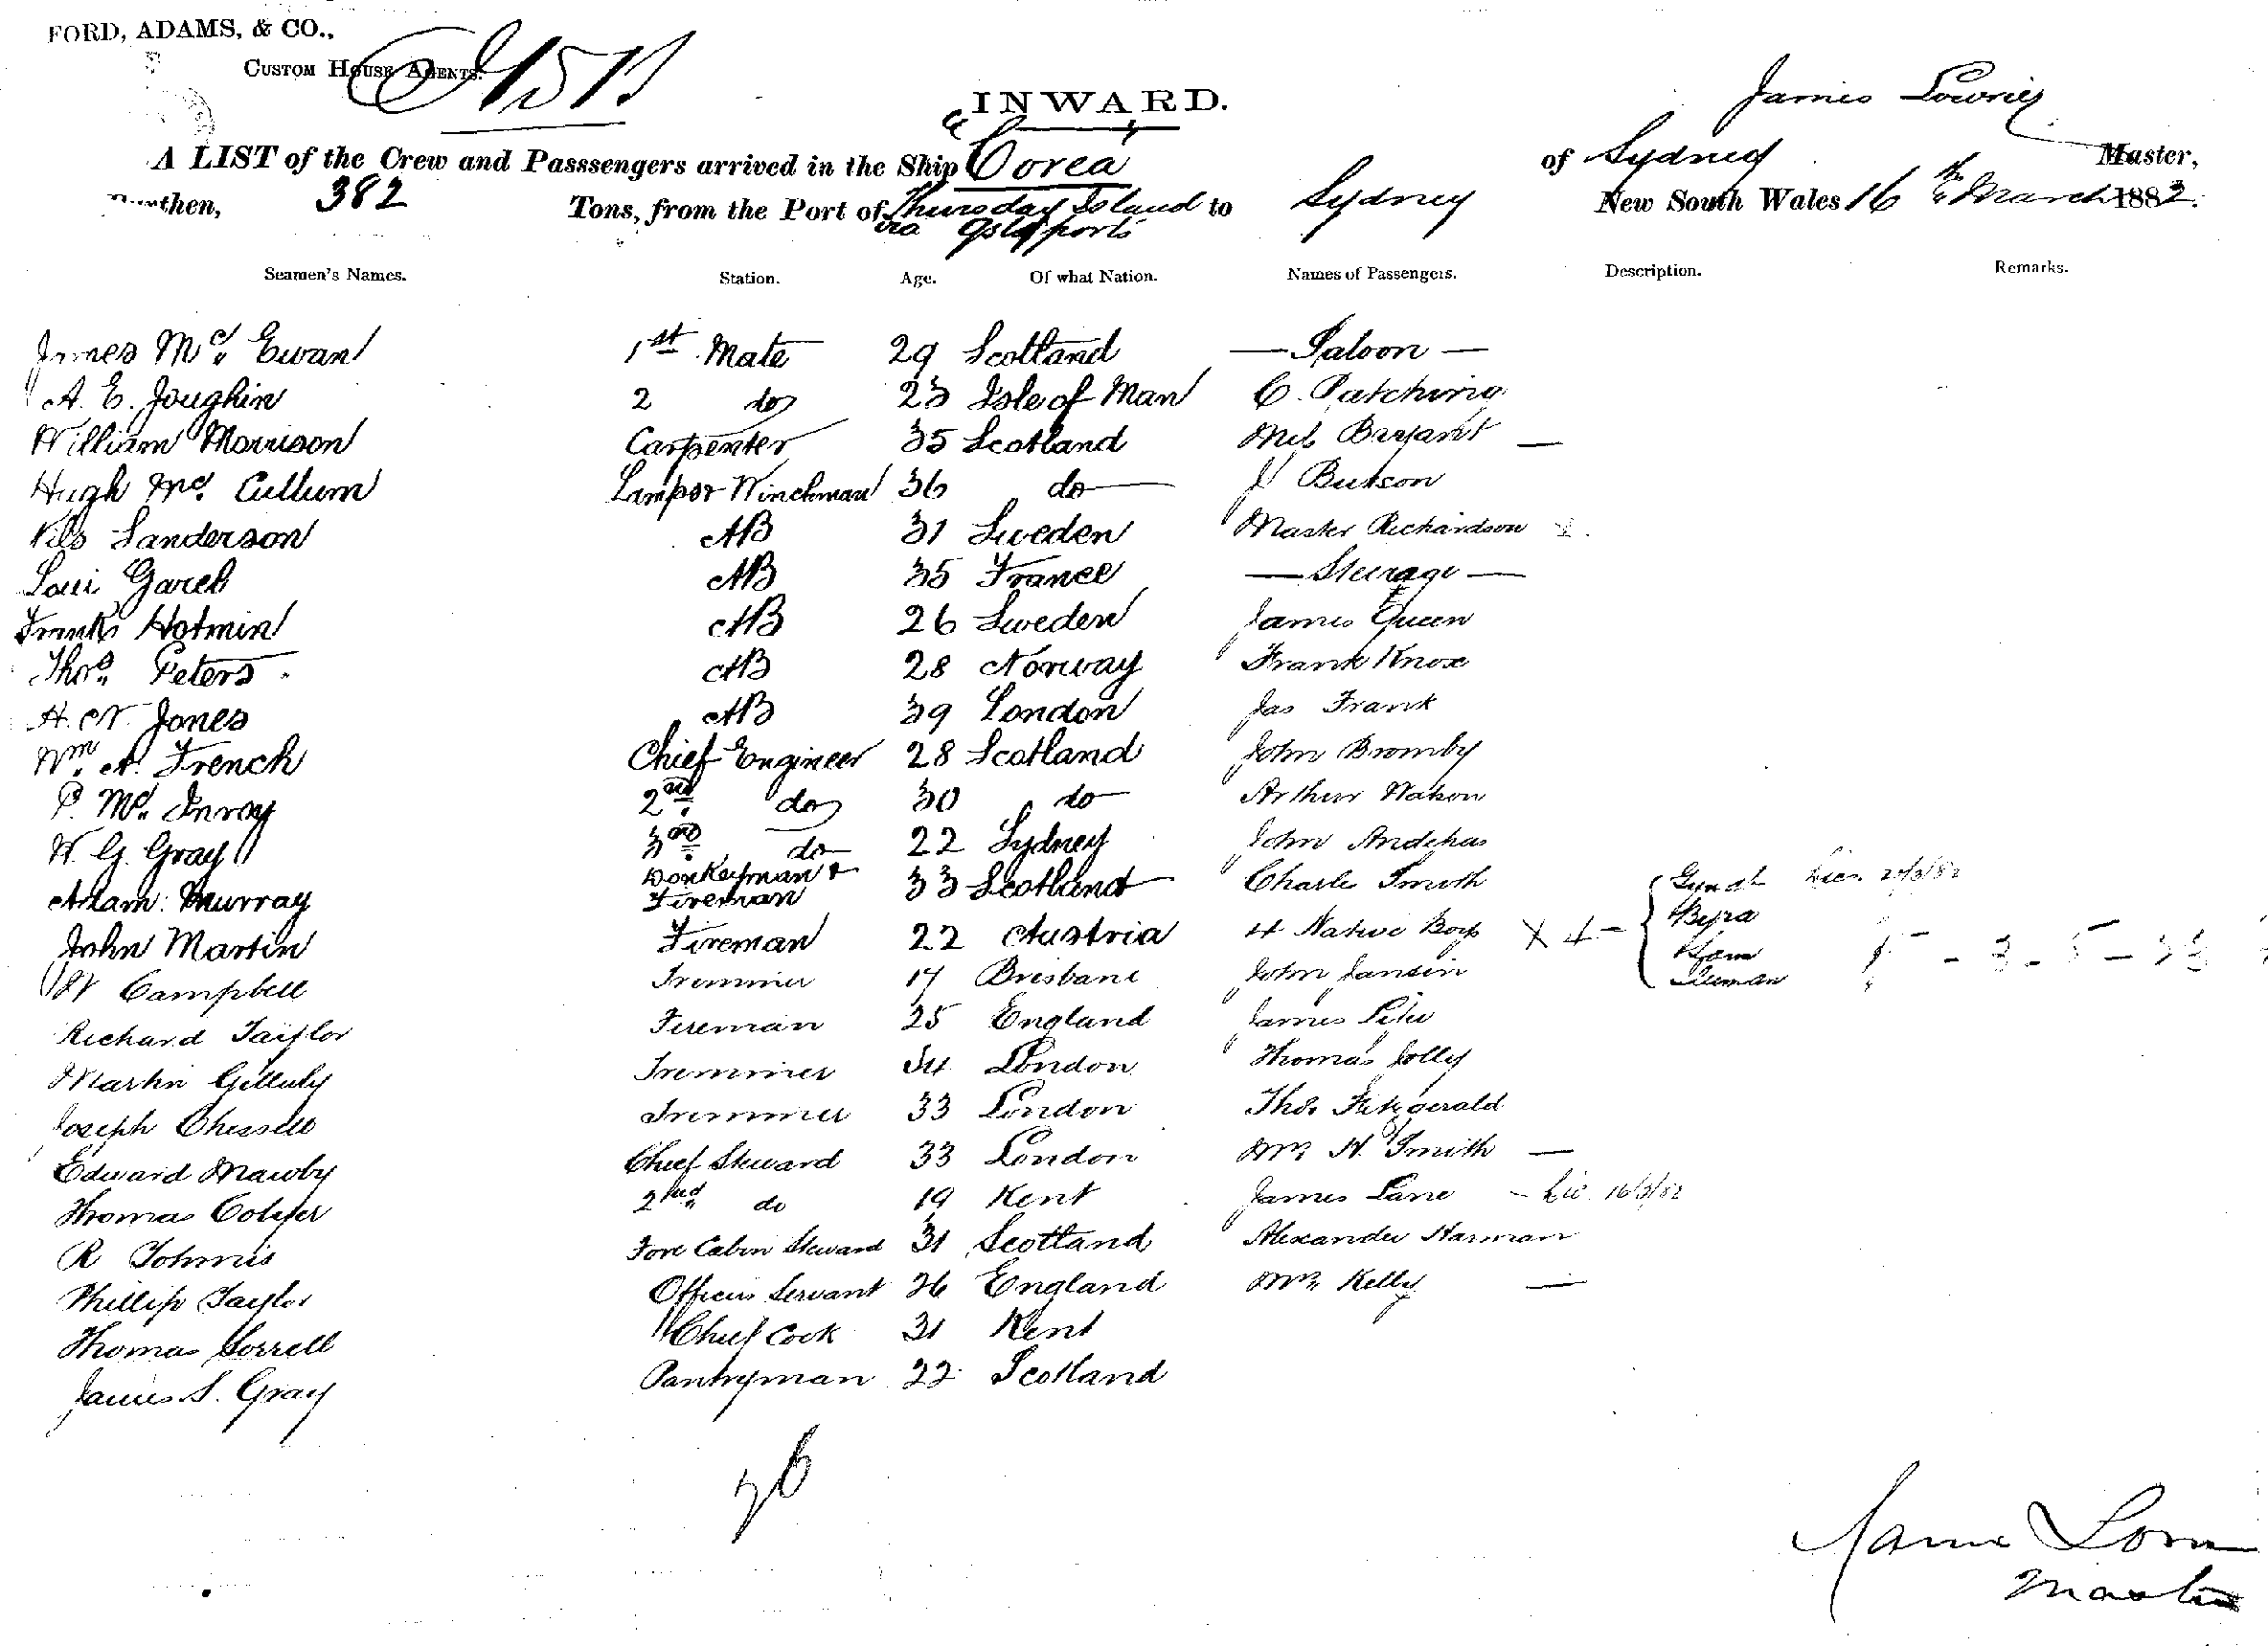 FORD, ADAMS, & CO.,
CUSTOM HOUSE AGENTS.
INWARD.
James Lowrie
A LIST of the Crew and Passsengers arrived in the Ship Corea of Sydney Master,
Burthen, 382 Tons, from the Port of Thursday Island to Sydney New South Wales 16th March 1882.
via Qsld ports
Seamen's Names. Station. Age. Of what Nation. Names of Passengers. Description. Remarks.
James Mc Ewan 1st Mate 29 Scotland — Saloon —
A. E. Joughin 2 do 23 Isle of Man C. Patching
William Morrison Carpenter 35 Scotland Bryant —
Hugh Mc Cullum Lamps & Winchman 36 do J Butson
Nils Sanderson AB 31 Sweden Master Richardson
Loui Garch AB 35 France — Steerage —
Frank Hotmin AB 26 Sweden James Queen
Thos. Peters AB 28 Norway Frank Knox
A. N. Jones AB 39 London Jas Frank
Wm. A. French Chief Engineer 28 Scotland John Bromby
P. Mc Inroy 2nd do 30 do Arthur Watson
W. G. Gray 3rd do 22 Sydney John
Adam Murray Donkeyman & Fireman 33 Scotland Charles Smith
John Martin Fireman 22 Austria 4 Native Boys X 4 -
W Campbell Trimmer 17 Brisbane John Jansin
Richard Taylor Fireman 25 England James
Martin Gilluly Trimmer 34 London Thomas Jolly
Joseph Trimmer 33 London Thos Fitzgerald
Edward Mawby Chief Steward 33 London Mrs H. Smith —
Thomas Colyer 2nd do 19 Kent James Lane - Lic. 16/3/82
R Tohmis Fore Cabin Steward 31 Scotland Alexander Harman
Phillip Taylor Officers Servant 26 England Mrs Kelly —
Thomas Sorrell Chief Cook 31 Kent
James S. Gray Pantryman 22 Scotland
James Lowrie
Master